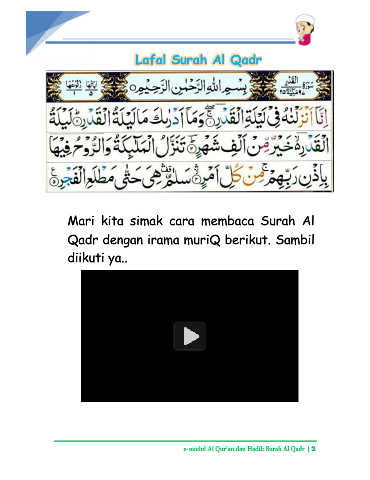 Lafal Surah Al Qadr
بِسْمِ اللّٰهِ الرَّحْمٰنِ الرَّحِيْمِ
اِنَّآ اَنْزَلْنٰهُ فِيْ لَيْلَةِ الْقَدْرِ ۝ وَمَآ اَدْرٰىكَ مَا لَيْلَةُ الْقَدْرِ ۝ لَيْلَةُ
الْقَدْرِ ەۙ خَيْرٌ مِّنْ اَلْفِ شَهْرٍ ۝ تَنَزَّلُ الْمَلٰٓئِكَةُ وَالرُّوْحُ فِيْهَا
بِاِذْنِ رَبِّهِمْ مِنْ كُلِّ اَمْرٍ ۝ سَلٰمٌ هِيَ حَتّٰى مَطْلَعِ الْفَجْرِ ۝
Mari kita simak cara membaca Surah Al
Qadr dengan irama muriQ berikut. Sambil
diikuti ya..
e-modul Al Qur'an dan Hadis Surah Al Qadr | 2